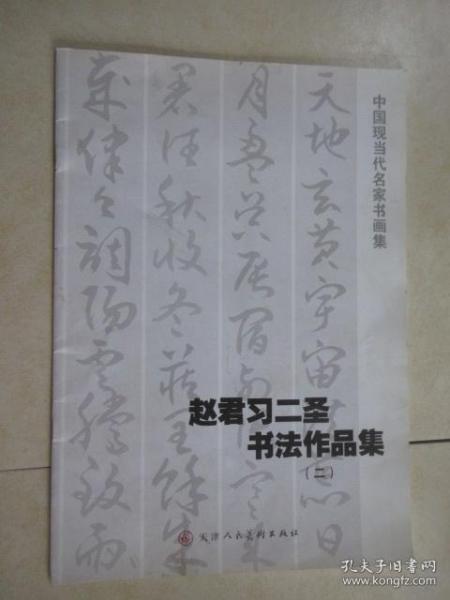 中国现当代名家书画集
天地玄黄宇宙洪荒日
月盈昃辰宿列張寒来
暑往秋收冬藏閏餘成
歲律吕調陽雲騰致雨
赵君习二圣
书法作品集
(二)
天津人民美術出版社
孔夫子旧书网
www.kongfz.com